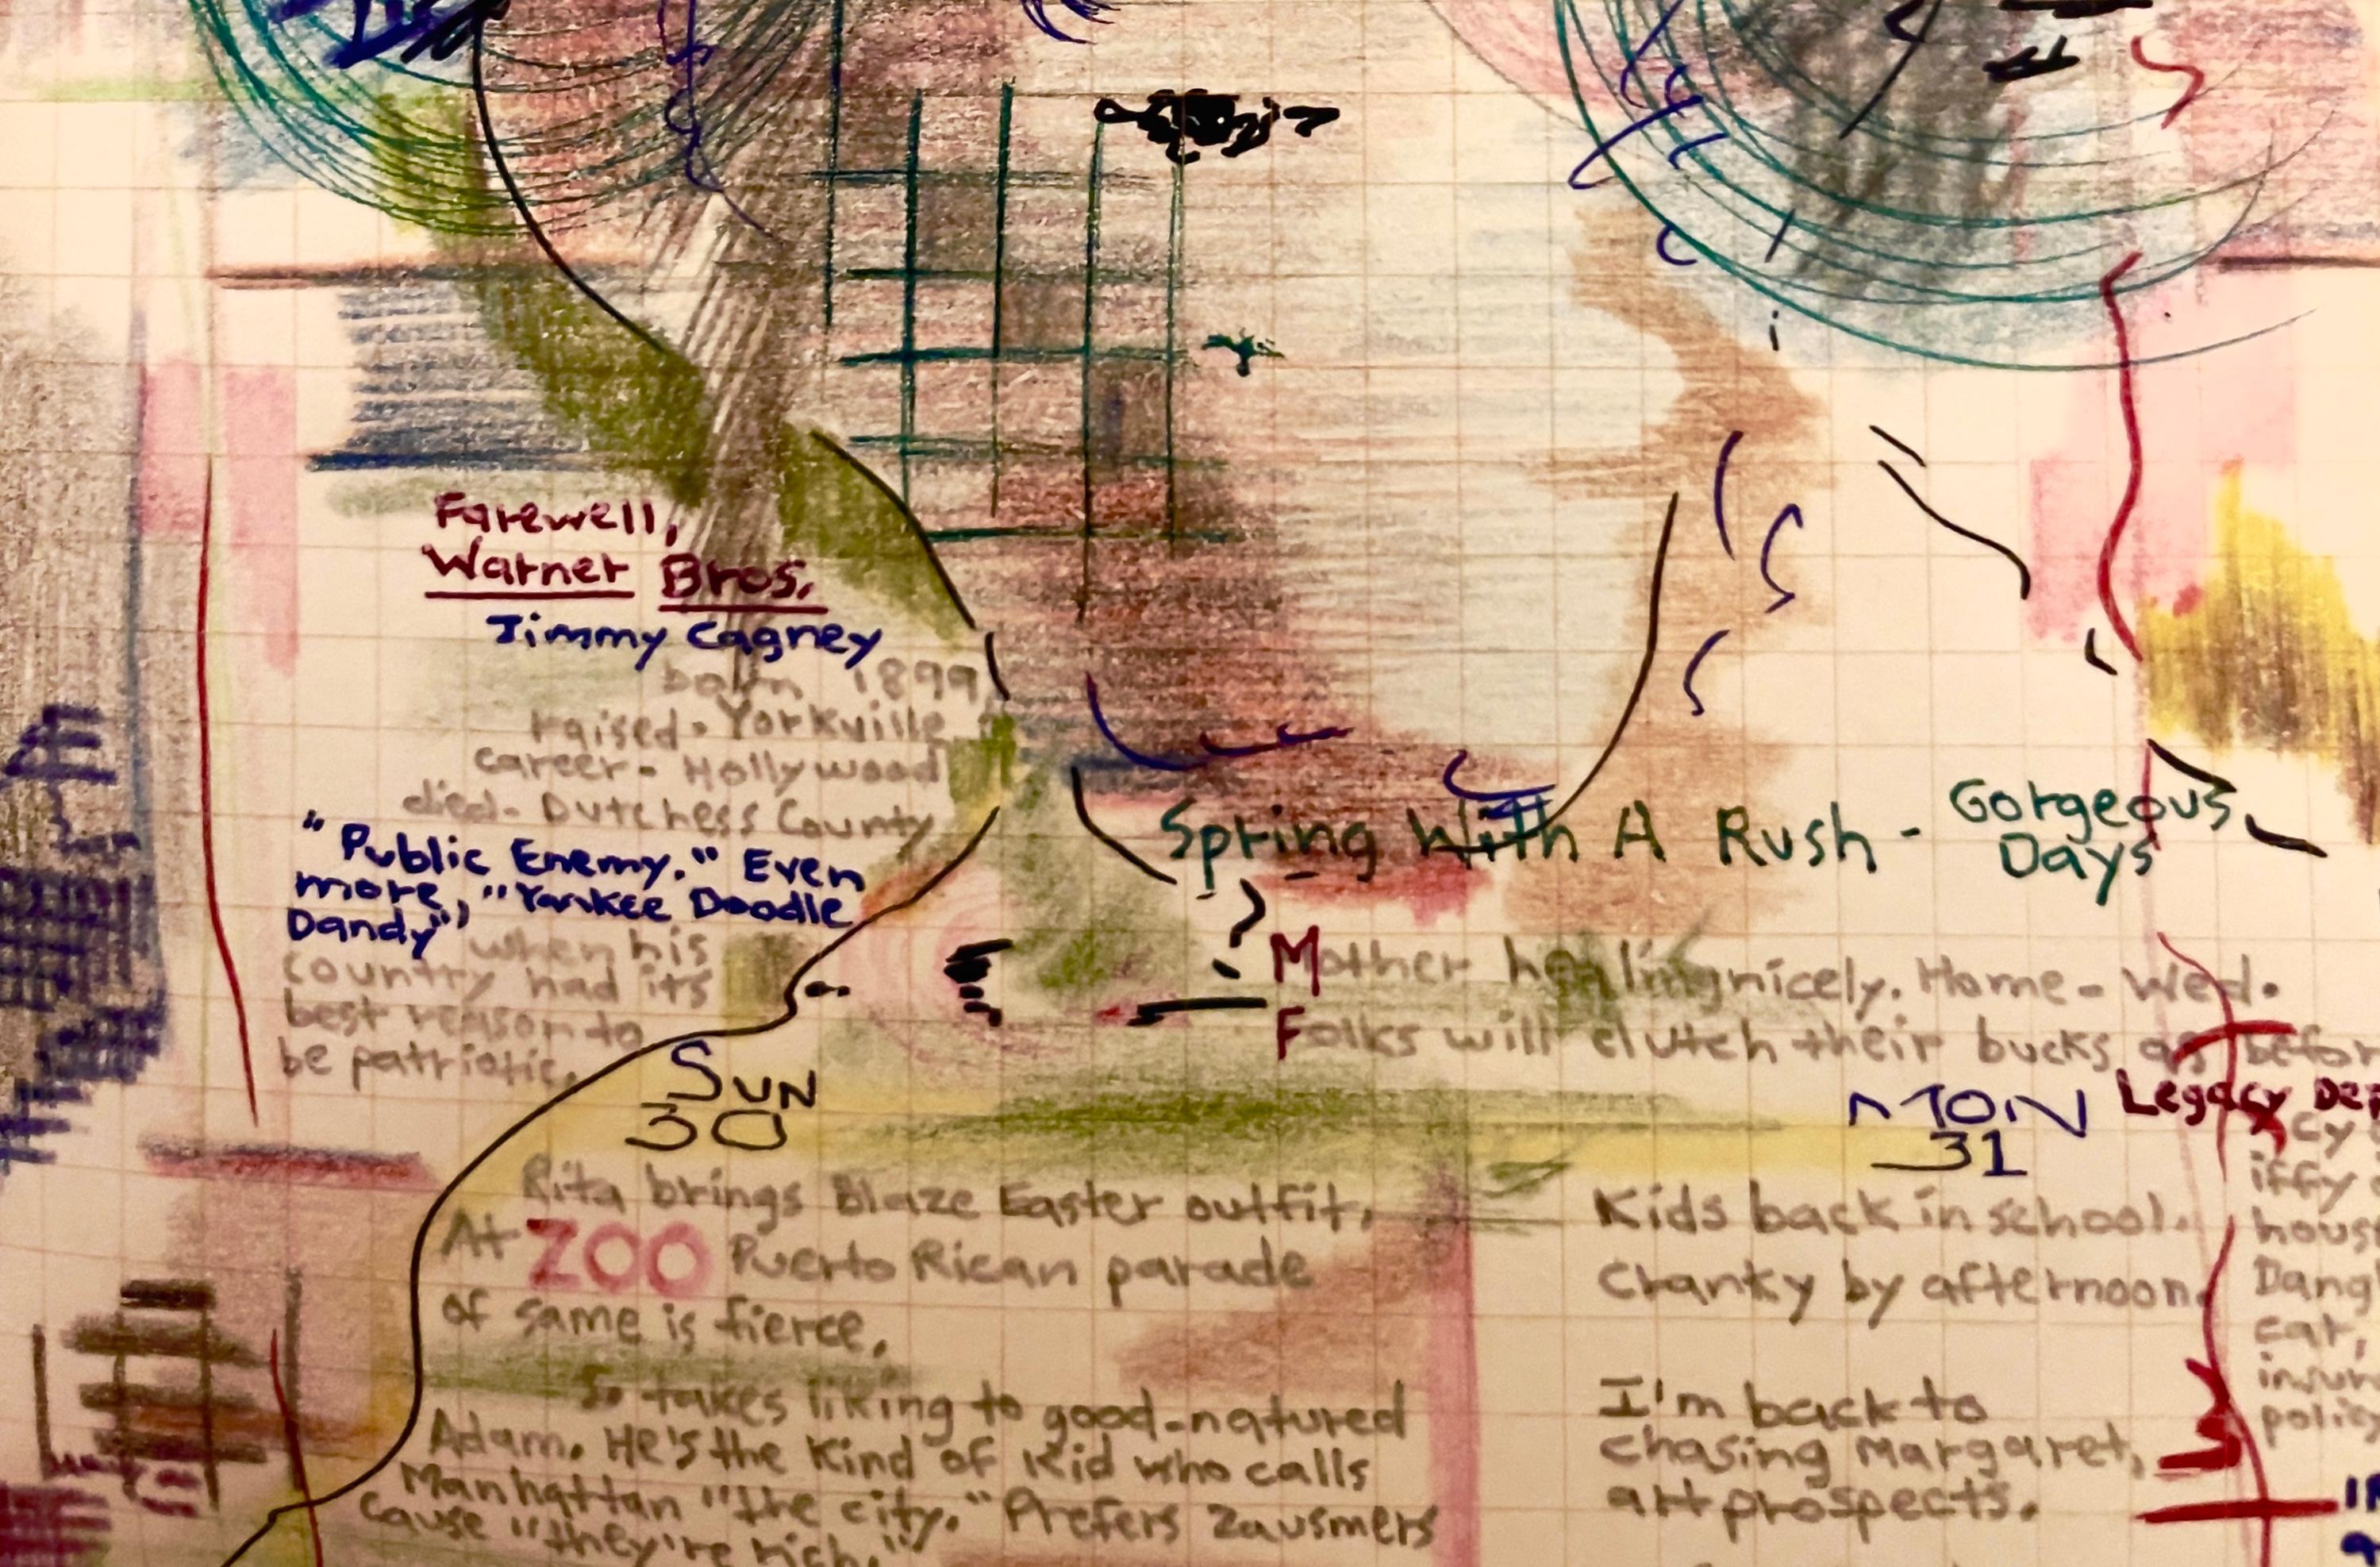 Farewell,
Warner Bros.
Jimmy Cagney
born 1899
raised- Yorkville
career- Hollywood
died- Dutchess County
"Public Enemy." Even
more, "Yankee Doodle
Dandy",
when his
country had its
best reason to
be patriotic.
Spring With A Rush - Gorgeous
Days
Mother healing nicely. Home- Wed.
Folks will clutch their bucks as befor
SUN
30
Rita brings Blaze Easter outfit.
At ZOO Puerto Rican parade
of same is fierce.
So takes liking to good-natured
Adam. He's the kind of kid who calls
Manhattan "the city." Prefers Zausmers
cause "they're rich."
MON
31
Kids back in school.
Cranky by afternoon.
I'm back to
chasing Margaret,
art prospects.
Legacy Dep
cy
iffy
hous
Dang
car,
insur
polic